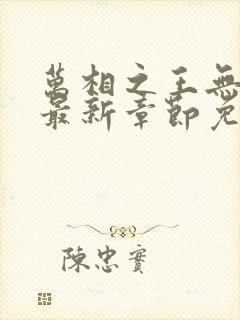 萬相之王無
最新章節免
陳忠實